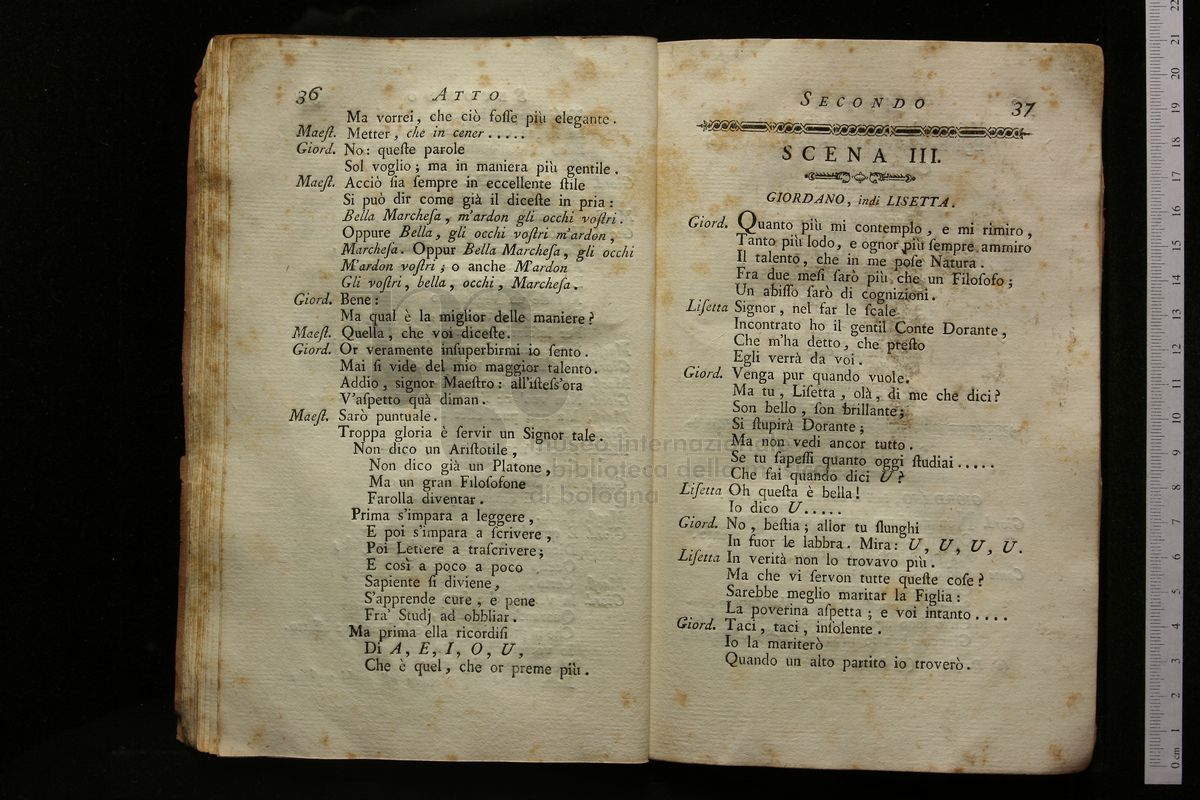 36 ATTO
Ma vorrei, che ciò foſſe più elegante.
Maeſt. Metter, che in cener.....
Giord. No: queſte parole
Sol voglio; ma in maniera più gentile.
Maeſt. Acciò ſia ſempre in eccellente ſtile
Si può dir come già il diceſte in pria:
Bella Marcheſa, m'ardon gli occhi voſtri.
Oppure Bella, gli occhi voſtri m'ardon,
Marcheſa. Oppur Bella Marcheſa, gli occhi
M'ardon voſtri; o anche M'ardon
Gli voſtri, bella, occhi, Marcheſa.
Giord. Bene:
Ma qual è la miglior delle maniere?
Maeſt. Quella, che voi diceſte.
Giord. Or veramente inſuperbirmi io ſento.
Mai ſi vide del mio maggior talento.
Addio, signor Maeſtro: all'iſteſs'ora
V'aſpetto quà diman.
Maeſt. Sarò puntuale.
Troppa gloria è ſervir un Signor tale.
Non dico un Ariſtotile,
Non dico già un Platone,
Ma un gran Filoſofone
Farolla diventar.
Prima s'impara a leggere,
E poi s'impara a ſcrivere,
Poi Lettere a traſcrivere;
E così a poco a poco
Sapiente ſi diviene,
S'apprende cure, e pene
Fra' Studj ad obbliar.
Ma prima ella ricordiſi
Di A, E, I, O, U,
Che è quel, che or preme più.
SECONDO 37
SCENA III.
GIORDANO, indi LISETTA.
Giord. Quanto più mi contemplo, e mi rimiro,
Tanto più lodo, e ognor più ſempre ammiro
Il talento, che in me poſe Natura.
Fra due meſi ſarò più che un Filoſofo;
Un abiſſo ſarò di cognizioni.
Liſetta Signor, nel far le ſcale
Incontrato ho il gentil Conte Dorante,
Che m'ha detto, che preſto
Egli verrà da voi.
Giord. Venga pur quando vuole.
Ma tu, Liſetta, olà, di me che dici?
Son bello, ſon brillante;
Si ſtupirà Dorante;
Ma non vedi ancor tutto.
Se tu ſapeſſi quanto oggi ſtudiai.....
Che fai quando dici U?
Liſetta Oh queſta è bella!
Io dico U.....
Giord. No, beſtia; allor tu ſlunghi
In fuor le labbra. Mira: U, U, U, U.
Liſetta In verità non lo trovavo più.
Ma che vi ſervon tutte queſte coſe?
Sarebbe meglio maritar la Figlia:
La poverina aſpetta; e voi intanto....
Giord. Taci, taci, inſolente.
Io la mariterò
Quando un alto partito io troverò.
museo internazionale
biblioteca della musica
di bologna
0 cm 1 2 3 4 5 6 7 8 9 10 11 12 13 14 15 16 17 18 19 20 21 22